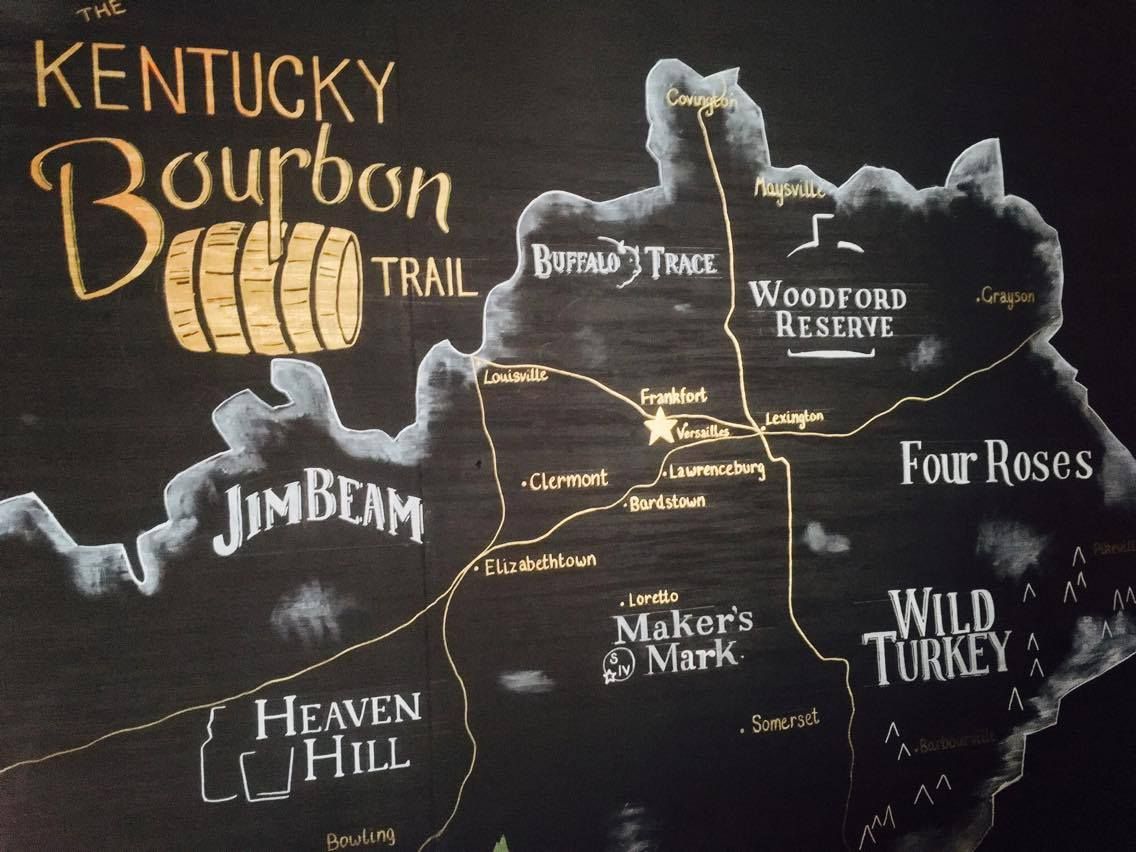 THE
KENTUCKY
Bourbon
TRAIL
Covington
Maysville
BUFFALO TRACE
WOODFORD
RESERVE
Grayson
Louisville
Frankfort
Versailles
Lexington
Lawrenceburg
Clermont
Bardstown
FOUR ROSES
JIM BEAM
Elizabethtown
Loretto
MAKER'S
MARK
S IV
WILD
TURKEY
Pikevill
HEAVEN
HILL
Somerset
Barbourville
Bowling